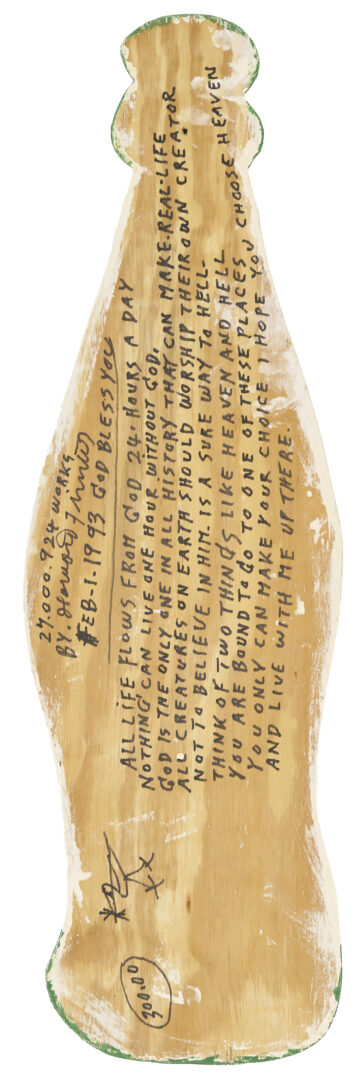 27.000.924 WORKS
BY. Howard Finster
FEB-1-1993 GOD BLESS YOU
ALL LIFE FLOWS FROM GOD 24-HOURS A DAY
NOTHING CAN LIVE ONE HOUR WITHOUT GOD.
GOD IS THE ONLY ONE IN ALL HISTORY THAT CAN MAKE-REAL-LIFE
ALL CREATURES ON EARTH SHOULD WORSHIP THEIR OWN CREATOR
NOT TO BELIEVE IN HIM. IS A SURE WAY TO HELL-
THINK OF TWO THINGS LIKE HEAVEN AND HELL
YOU ARE BOUND TO GO TO ONE OF THESE PLACES
YOU ONLY CAN MAKE YOUR CHOICE I HOPE YOU CHOOSE HEAVEN
AND LIVE WITH ME UP THERE.
300.00